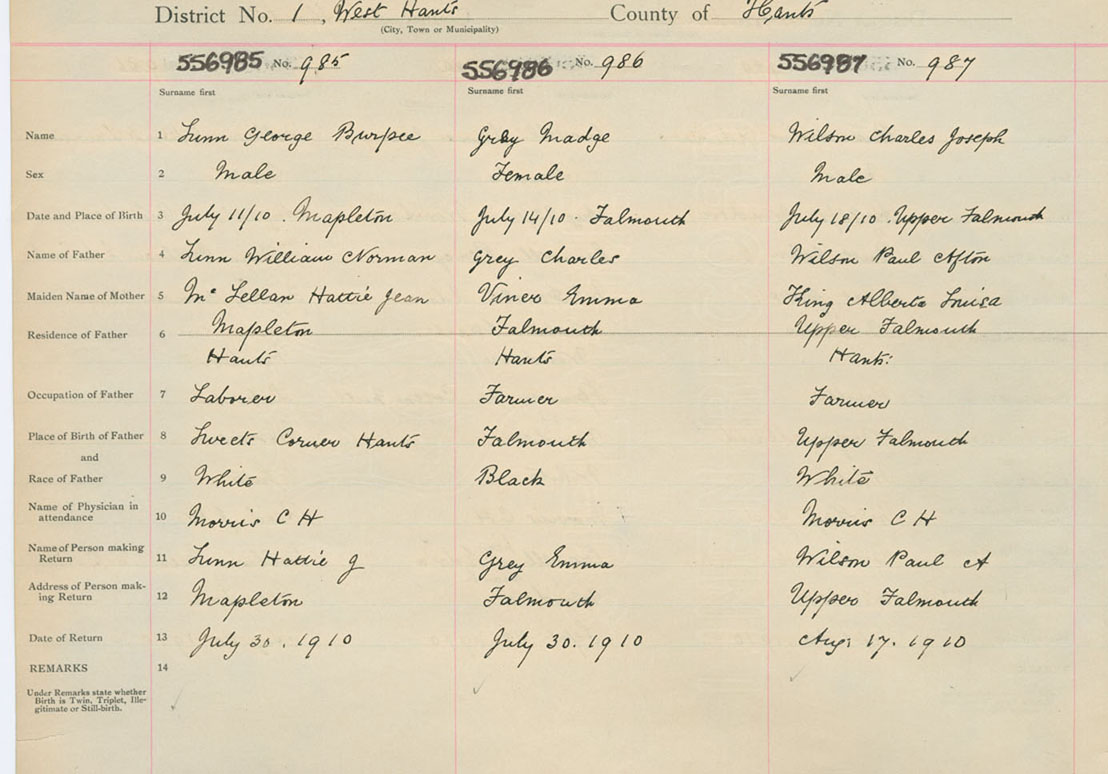 District No. 1, West Hants County of Hants
(City, Town or Municipality)
556985 No. 985 556986 No. 986 556987 No. 987
Surname first Surname first Surname first
Name 1 Lunn George Burpee Grey Madge Wilson Charles Joseph
Sex 2 Male Female Male
Date and Place of Birth 3 July 11/10. Mapleton July 14/10. Falmouth July 18/10. Upper Falmouth
Name of Father 4 Lunn William Norman Grey Charles Wilson Paul Afton
Maiden Name of Mother 5 Mc Lellan Hattie Jean Viner Emma King Alberta Louisa
Residence of Father 6 Mapleton Falmouth Upper Falmouth
Hants Hants Hants:
Occupation of Father 7 Laborer Farmer Farmer
Place of Birth of Father 8 Sweets Corner Hants Falmouth Upper Falmouth
and
Race of Father 9 White Black White
Name of Physician in
attendance 10 Morris C H Morris C H
Name of Person making
Return 11 Lunn Hattie J Grey Emma Wilson Paul A
Address of Person mak-
ing Return 12 Mapleton Falmouth Upper Falmouth
Date of Return 13 July 30. 1910 July 30. 1910 Aug: 17. 1910
REMARKS 14
Under Remarks state whether
Birth is Twin, Triplet, Ille-
gitimate or Still-birth.